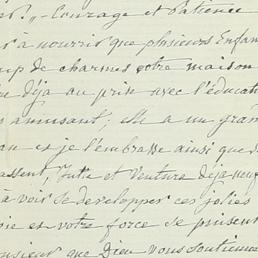 Courage et Patience
à nourrir que plusieurs Enfan
up de charmes votre maison
déjà au prix avec l'éducat
amusant; il a un gran
an et je l'embrasse ainsi que d
assent, Julia et Ventura déjà neuf
à voir se developper ces jolies
ie et votre force se puisent
nsieur que Dieu vous soutienne